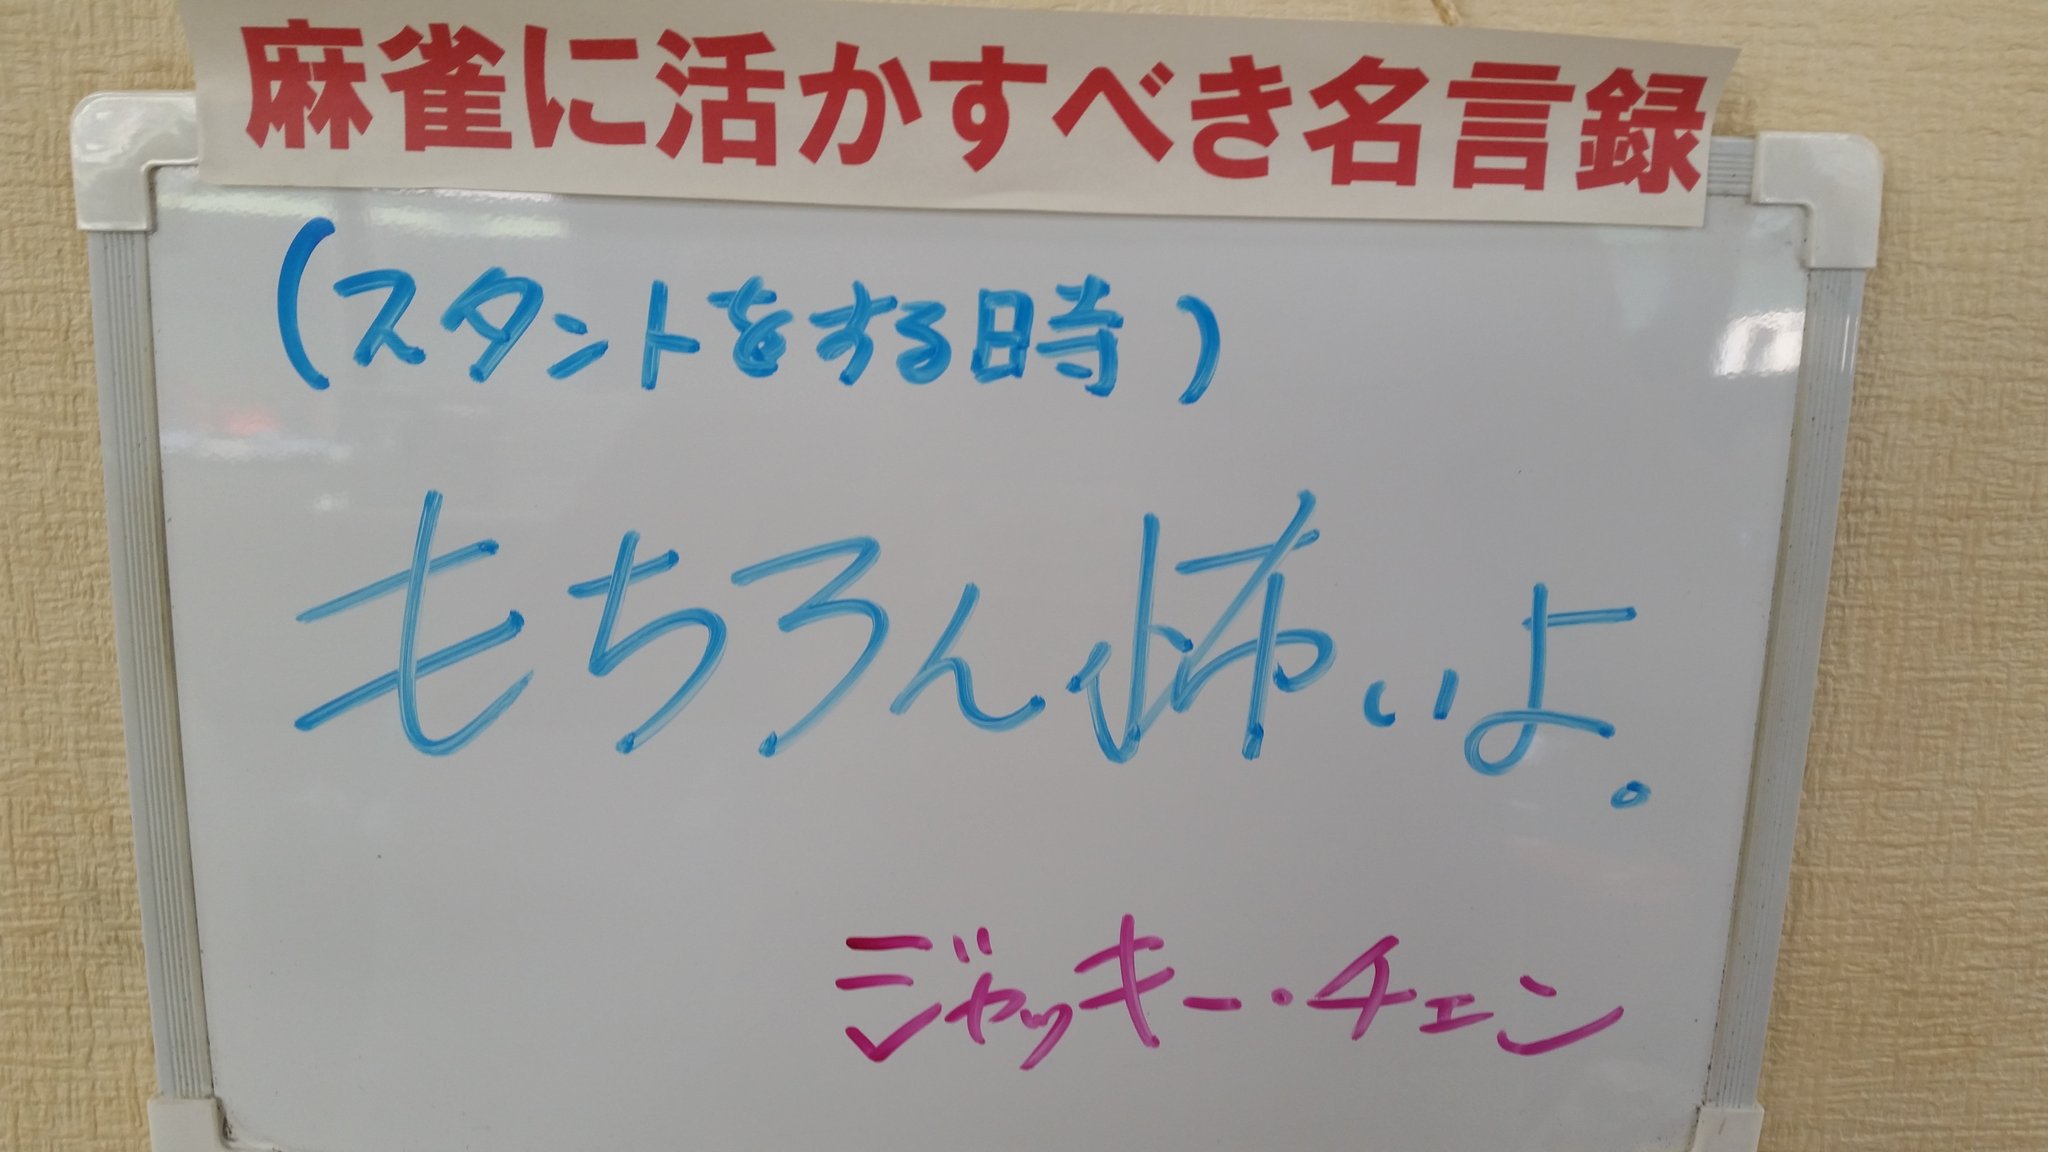 麻雀に活かすべき名言録
(スタントをする時)
もちろん怖いよ。
ジャッキー・チェン